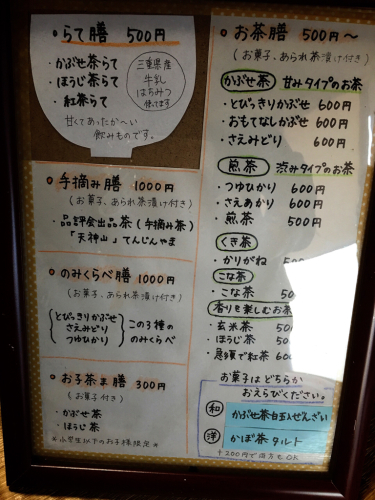 ◦らて膳 500円
・かぶせ茶らて
・ほうじ茶らて
・紅茶らて
三重県産
牛乳
はちみつ
使ってます
甘くてあったか〜い
飲みものです。
◦手摘み膳 1000円
(お菓子、あられ茶漬け付き)
・品評会出品茶(手摘み茶)
「天神山」てんじんやま
◦のみくらべ膳 1000円
(お菓子、あられ茶漬け付き)
とびっきりかぶせ
さえみどり
つゆひかり
この3種の
のみくらべ
◦お子茶ま膳 300円
(お菓子付き)
・かぶせ茶
・ほうじ茶
※小学生以下のお子様限定※
◦お茶膳 500円〜
(お菓子、あられ茶漬け付き)
かぶせ茶 甘みタイプのお茶
・とびっきりかぶせ 600円
・おもてなしかぶせ 600円
・さえみどり 600円
煎茶 渋みタイプのお茶
・つゆひかり 600円
・さえあかり 600円
・煎茶 500円
くき茶
・かりがね 500
こな茶
・こな茶 500
香りを楽しむお茶
・玄米茶 50
・ほうじ茶 50
・急須で紅茶 60
お菓子はどちらか
おえらびください。
和 かぶせ茶白玉入ぜんざい
洋 かぶ茶タルト
+200円で両方もOK